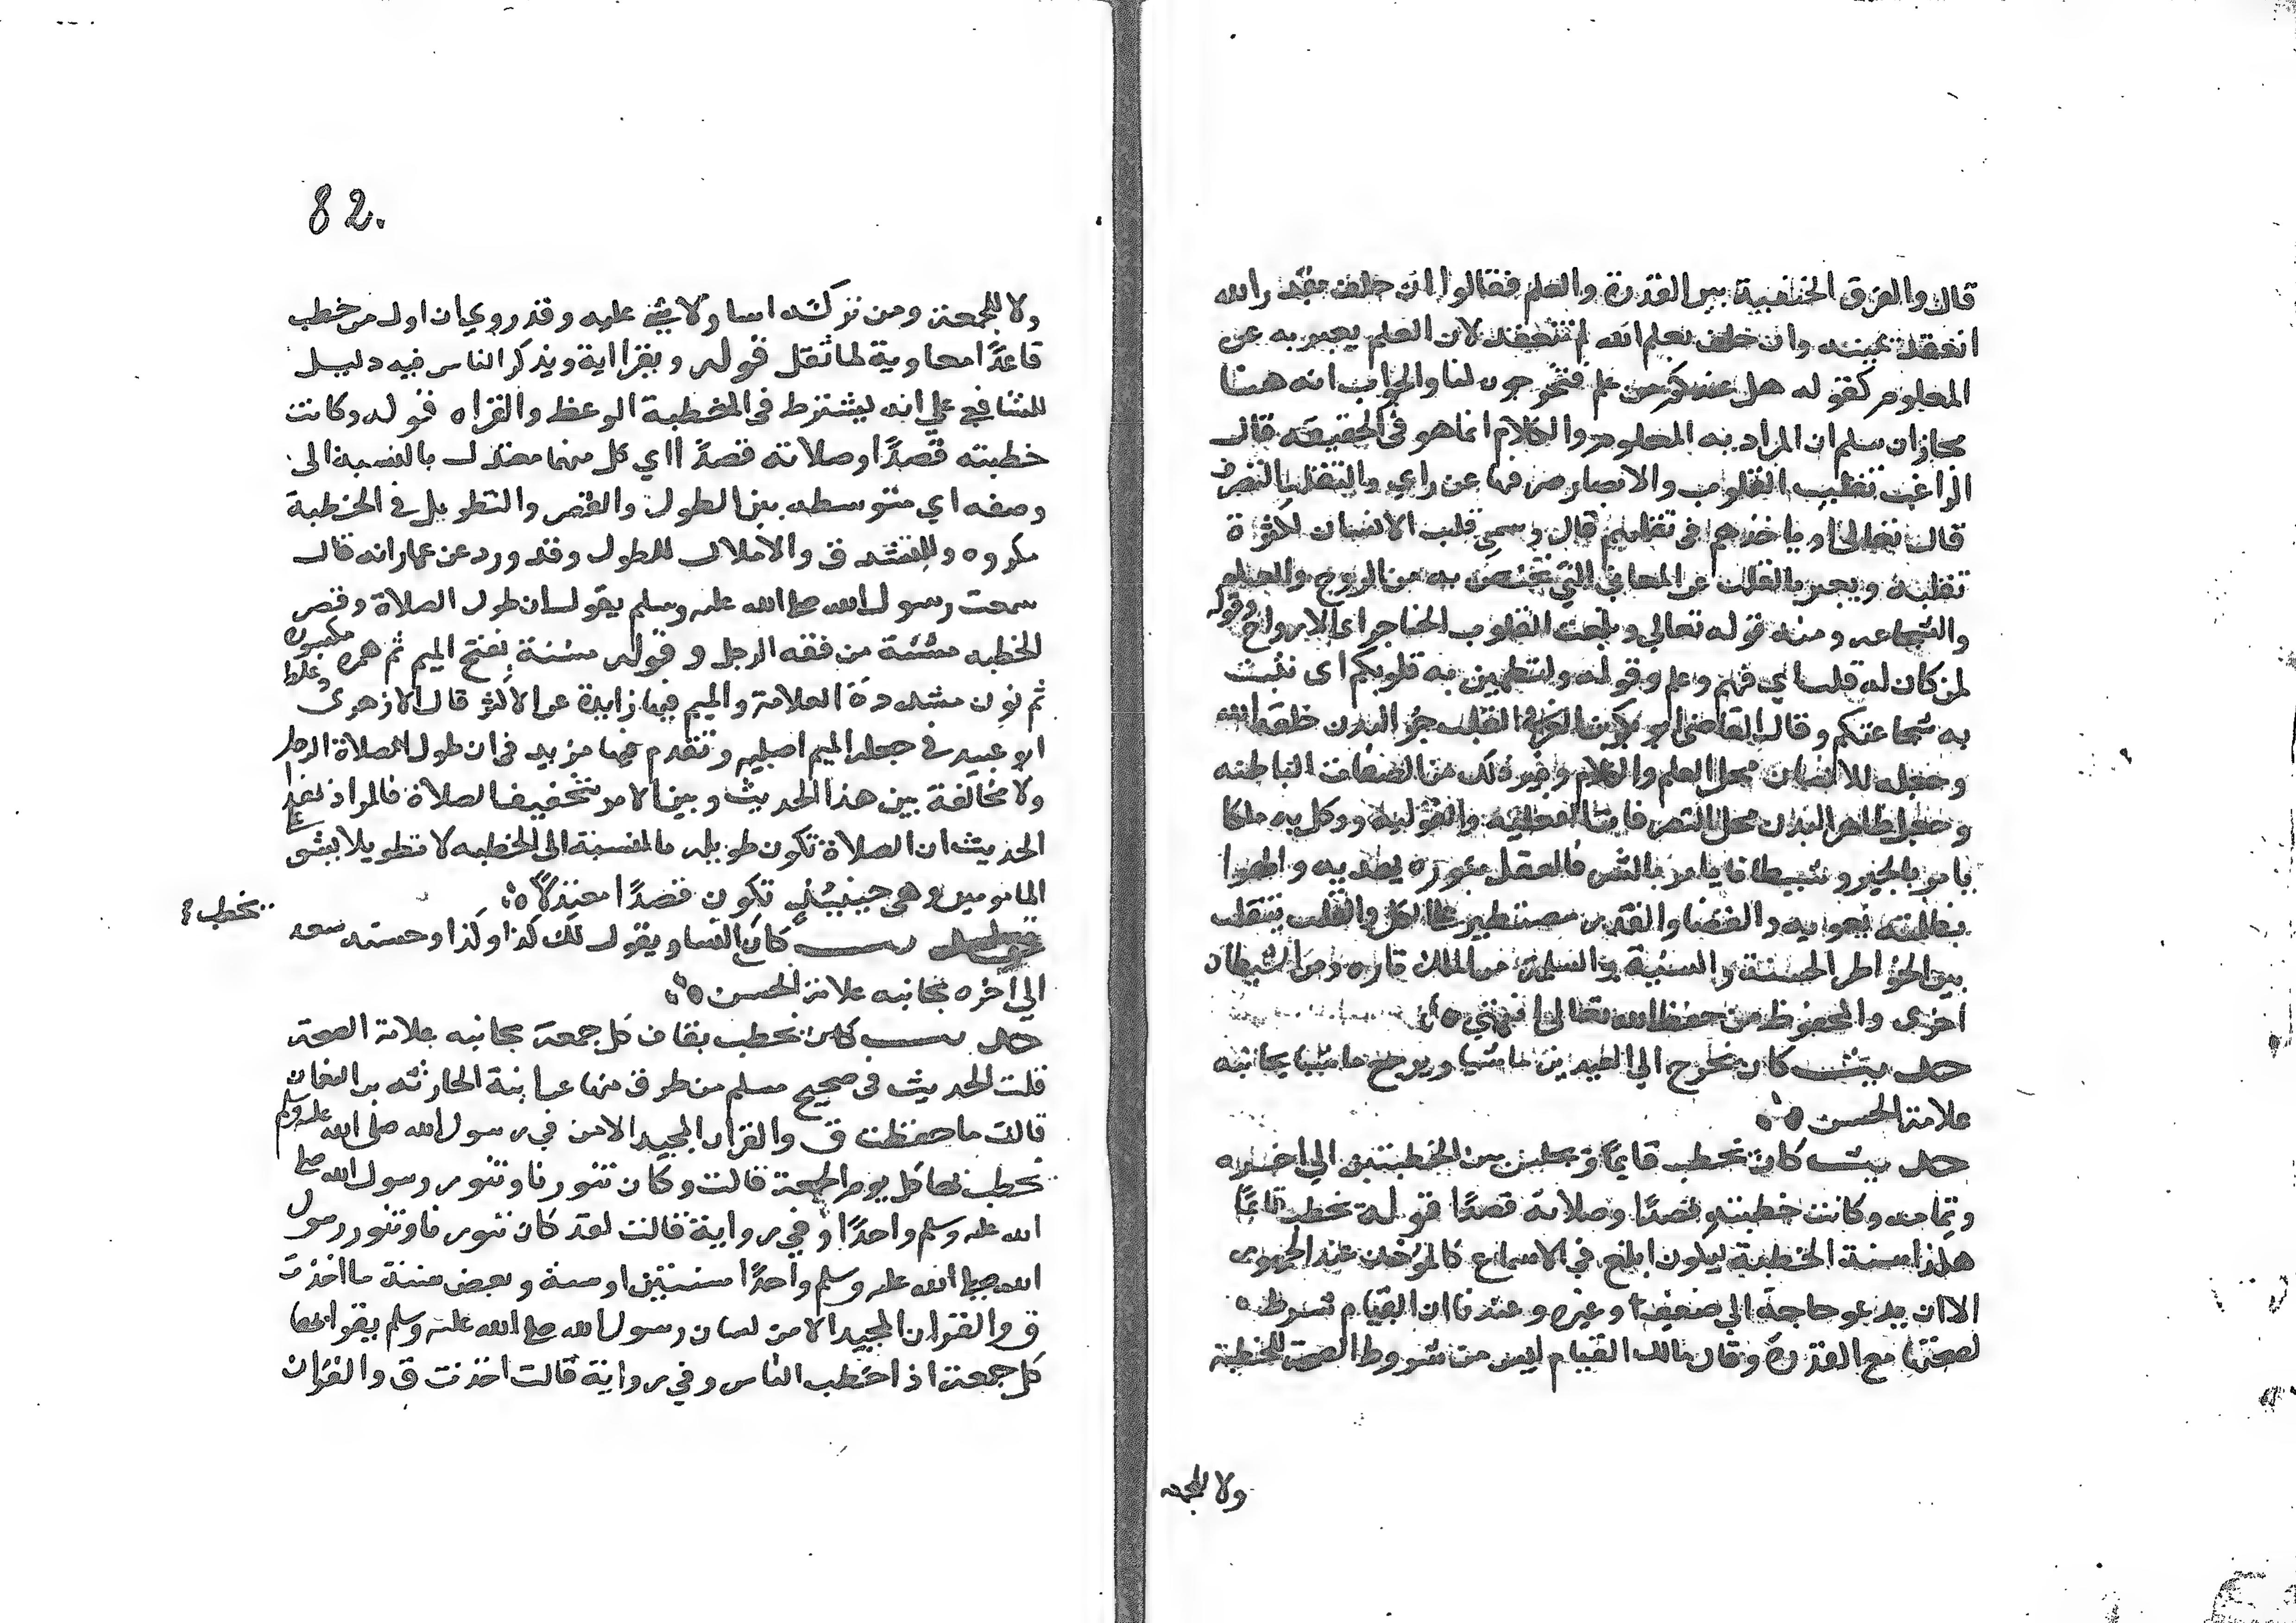 قال والفرق الحنفية بين القدرة والعلم فقالوا ان حلف بقدرة الله
انعقد يمينه وان حلف بعلم الله لم تنعقد لان العلم يعبر به عن
المعلوم كقوله هل عندكم من علم فتخرجوه لنا والجواب انه هنا
مجاز ان سلم ان المراد به المعلوم والكلام انما هو في الحقيقه قال
الراغب تقليب القلوب والابصار صرفها عن راي والتقلب التصرف
قال تعالى او ياخذهم في تقلبهم قال وسمى قلب الانسان لكثرة
تقلبه ويعبر بالقلب عن المعاني التي تختص به من الروح والعلم
والشجاعه ومنه قوله تعالي وبلغت القلوب الحناجر اى الارواح وقوله
لمن كان له قلب اي فهم وعلم وقوله ولتطمين به قلوبكم اى تثبت
به شجاعتكم وقال القاضى ابو بكر بن العربى القلب جزؤ البدن خلقه الله
وجعله للانسان محل العلم والكلام وغير ذلك من الصفات الباطنه
وجعل ظاهر البدن محل التصرفات الفعليه والقوليه ووكل به ملكا
يامر بالخير وشيطانا يامر بالشر فالعقل بنوره يهديه والهوا
بظلمته يغويه والقضا والقدر مسيطر على الكل والقلب يتقلب
بين الخواطر الحسنة والسيئة واللمة من الملك تاره ومن الشيطان
اخرى والمحفوظ من حفظه الله تعالى انتهى ه
حديث كان يخرج الي العيدين ماشيا ويرجع ماشيا بجانبه
علامة الحسن ه
حديث كان يخطب قايمًا ويجلس بين الخطبتين الي اخره
وتمامه وكانت خطبته قصدًا وصلاته قصدًا قوله يخطب قايمًا
هذا سنة الخطبة ليكون ابلغ في الاسماع كالموذن عند الجمهور
الا ان يدعو حاجة الي ضعيف او غيره وعندنا ان القيام شرط ه
لصحتها مع القدرة وقال مالك القيام ليس من شروط الصحة للخطبة
ولا للجمعه
82.
ولا للجمعة ومن تركه اسا ولا شي عليه وقد روي ان اول من خطب
قاعدًا معاوية لما ثقل قوله ويقرا اية ويذكر الناس فيه دليل
للشافعي علي انه يشترط في الخطبة الوعظ والقراه قوله وكانت
خطبته قصدًا وصلاته قصدًا اي كل منهما معتدل بالنسبة الى
وصفه اي متوسطه بين الطول والقصر والتطويل في الخطبة
مكروه وللتشدق والاملال للطول وقد ورد عن عمار انه قال
سمعت رسول الله صلى الله عليه وسلم يقول ان طول الصلاة وقصر
الخطبه مئنة من فقه الرجل وقوله مئنة بفتح الميم ثم همزه مكسوره
ثم نون مشددة العلامة والميم فيها زايدة عند الاكثر قال الازهرى وغلط
ابو عبيد في جعله الميم اصليه وتقدم فيها مزيد في ان طول الصلاة الرجل
ولا مخالفة بين هذا الحديث وبين الامر بتخفيف الصلاة فالمراد بهذا
الحديث ان الصلاة تكون طويله بالنسبة الى الخطبه لا تطويلا يشق على
المامومين وهي حينيئذٍ تكون قصدًا معتدلاً ه
حديث كان النسا ويقول لك كذا وكذا وحسنه سعد
يخطب
الي اخره بجانبه علامة الحسن ه
حديث كان يخطب بقاف كل جمعة بجانبه علامة الصحة
قلت الحديث في صحيح مسلم من طرق منها عن ابنة الحارثه بن النعمان
قالت ما حفظت ق والقران المجيد الا من في رسول الله صلى الله عليه وسلم
يخطب بها كل يوم الجمعة قالت وكان تنورنا وتنور رسول الله صلى
الله عليه وسلم واحدًا وفي رواية قالت لقد كان تنورنا وتنور رسول
الله صلى الله عليه وسلم واحدًا سنتين او سنة وبعض سنة ما اخذت
ق والقران المجيد الا من لسان رسول الله صلى الله عليه وسلم يقراها
كل جمعة اذا خطب الناس وفي رواية قالت اخذت ق والقران